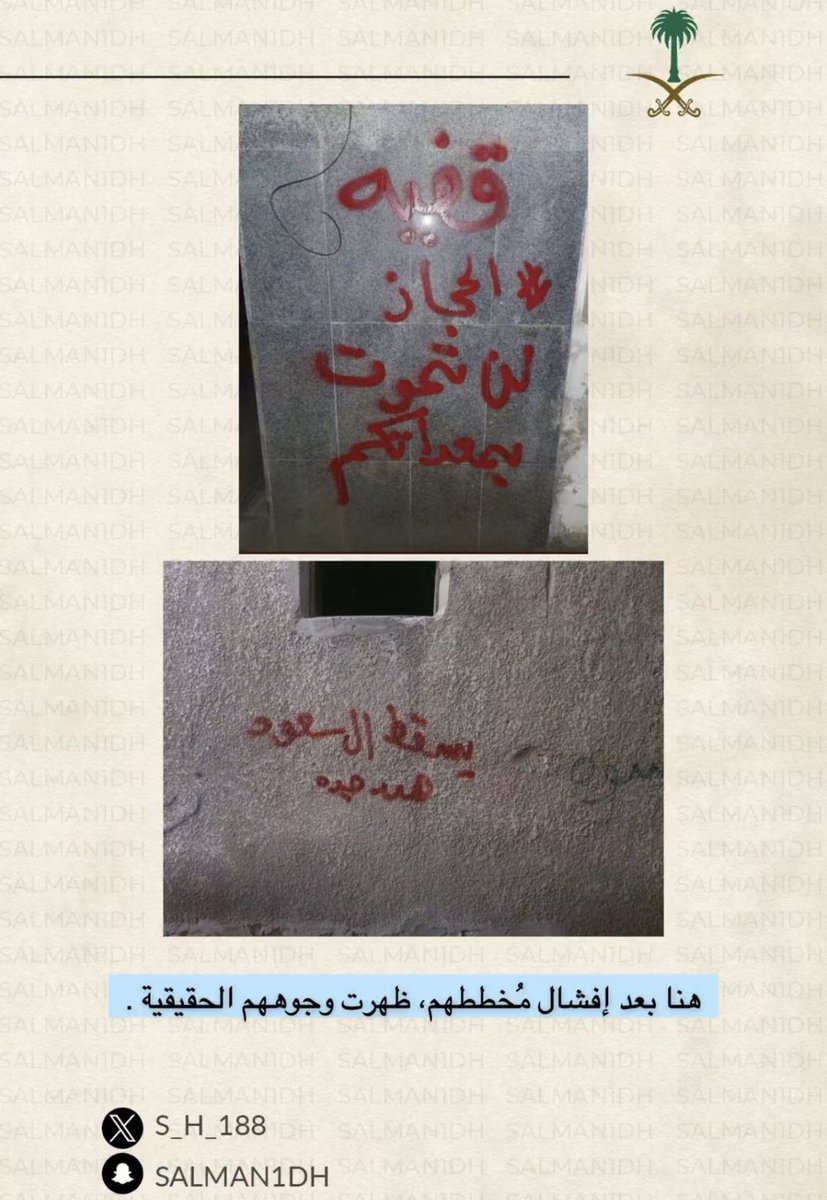 قفيه
# الحجاز
لن تموت
بمعداتكم
يسقط ال سعود
هدد جده
هنا بعد إفشال مُخططهم، ظهرت وجوههم الحقيقية .
S_H_188
SALMAN1DH